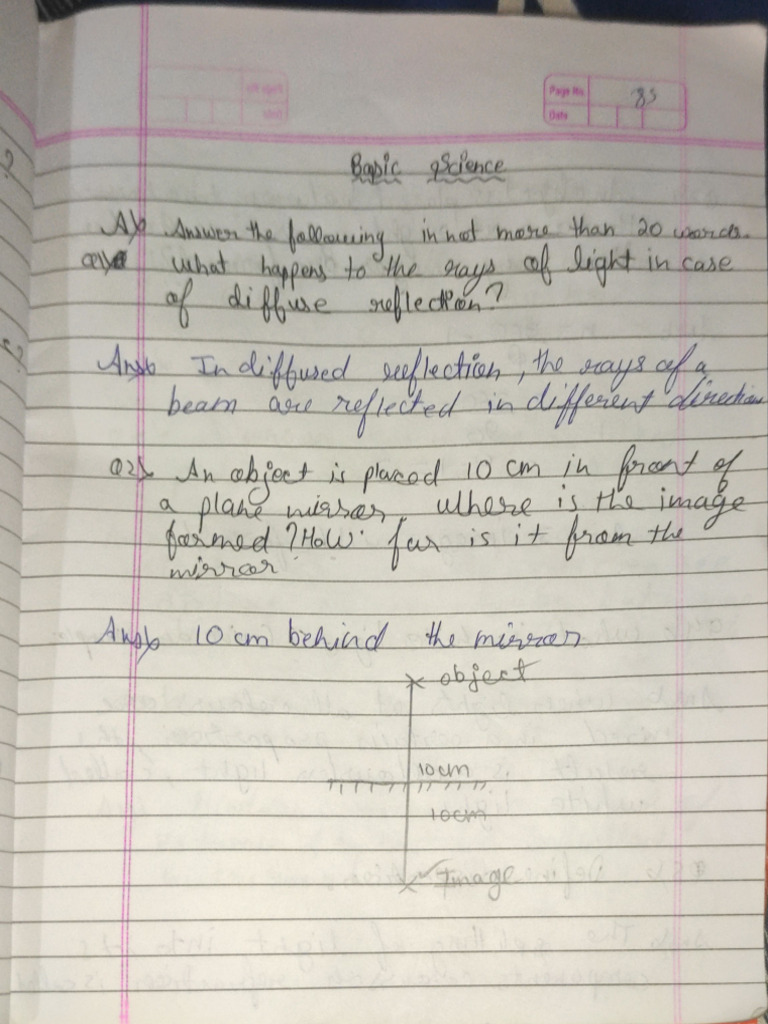 Page No. 85
Date
Basic Science
A) Answer the following in not more than 20 words.
Q1) What happens to the rays of light in case
of diffuse reflection?
Ans) In diffused reflection, the rays of a
beam are reflected in different direction
Q2) An object is placed 10 cm in front of
a plane mirror. Where is the image
formed ? How far is it from the
mirror
Ans) 10 cm behind the mirror
object
10cm
10cm
Image